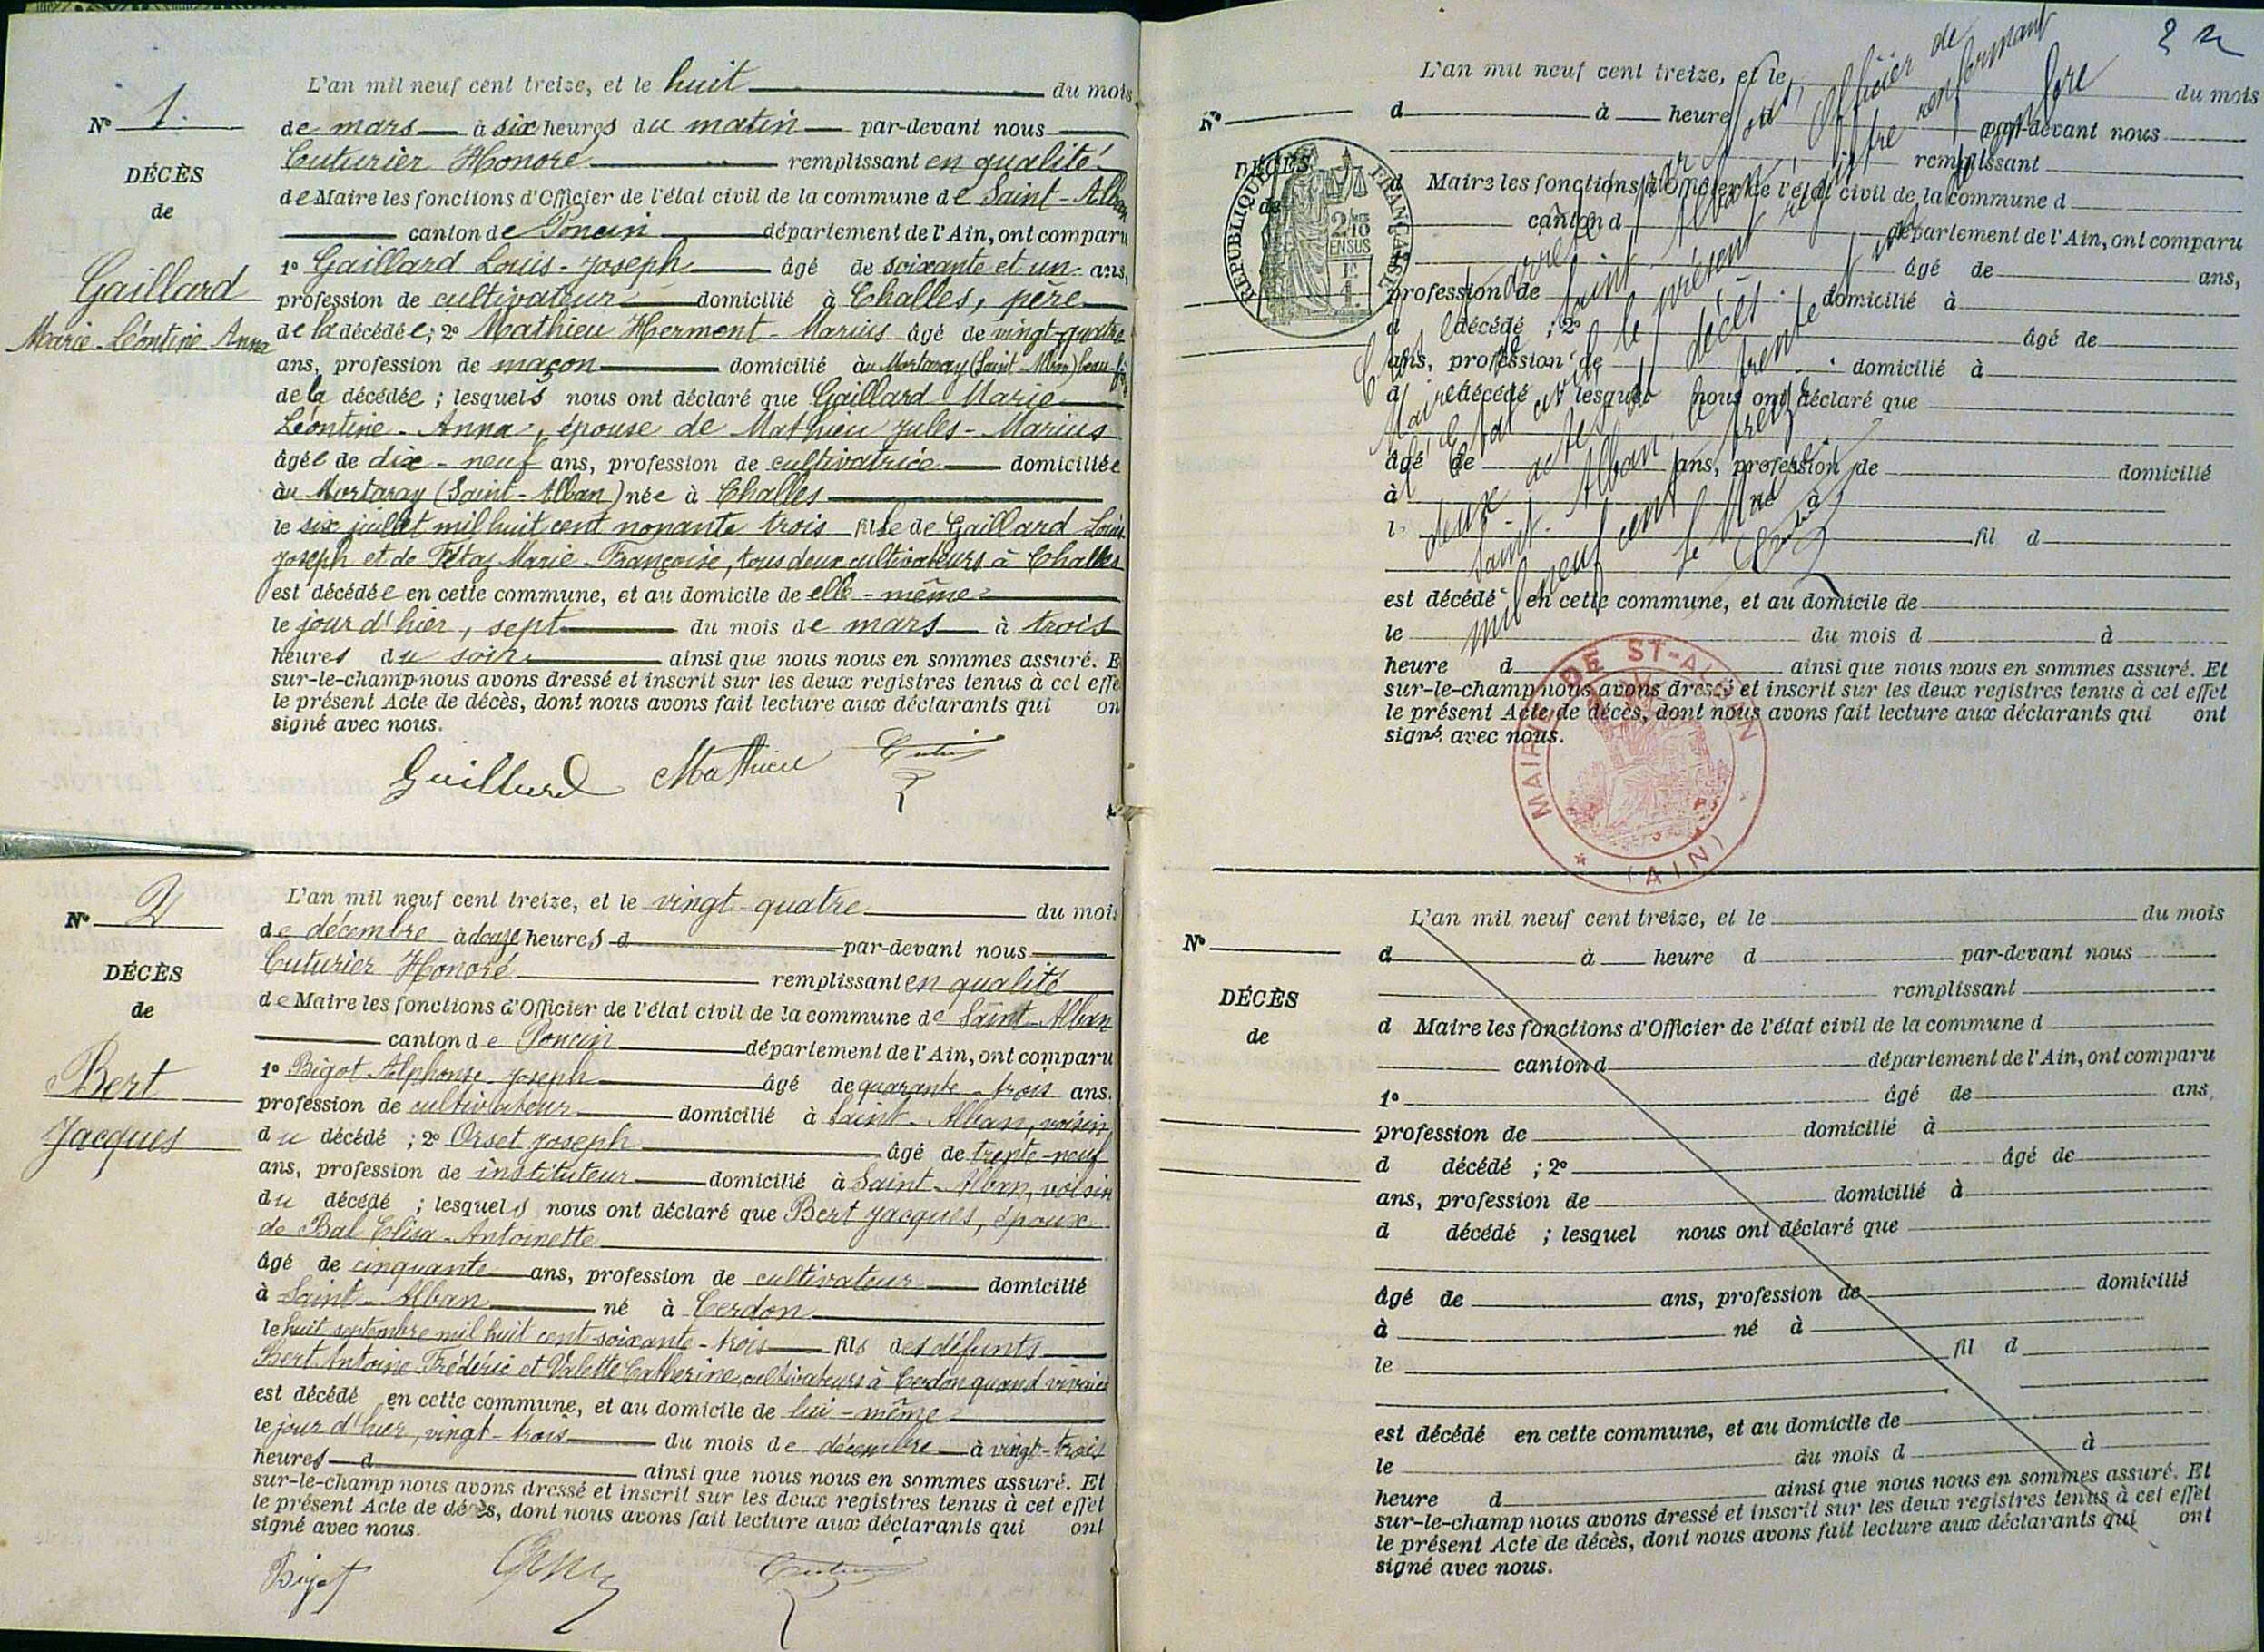 L'an mil neuf cent treize, et le huit du mois
N° 1.
de mars à six heures du matin par-devant nous
Cuturier Honoré remplissant en qualité
DÉCÈS
de Maire les fonctions d'Officier de l'état civil de la commune de Saint-Alban
de
canton de Poncin département de l'Ain, ont comparu
1° Gaillard Louis-Joseph âgé de soixante et un ans,
Gaillard
profession de cultivateur domicilié à Challes, père
Marie-Léontine Anna
de la décédée; 2° Mathieu Hermont-Marius âgé de vingt-quatre
ans, profession de maçon domicilié au Mortaray (Saint-Alban) beau-
de la décédée; lesquels nous ont déclaré que Gaillard Marie
Léontine-Anna, épouse de Mathieu Jules-Marius
âgée de dix-neuf ans, profession de cultivatrice domiciliée
au Mortaray (Saint-Alban) née à Challes
le six juillet mil huit cent nonante trois fille de Gaillard Louis
Joseph et de Tétaz Marie-Françoise, tous deux cultivateurs à Challes
est décédée en cette commune, et au domicile de elle-même
le jour d'hier, sept du mois de mars à trois
heures du soir ainsi que nous nous en sommes assuré. E
sur-le-champ nous avons dressé et inscrit sur les deux registres tenus à cet effe
le présent Acte de décès, dont nous avons fait lecture aux déclarants qui on
signé avec nous.
Gaillard Mathieu
L'an mil neuf cent treize, et le vingt-quatre du mois
N° 2
de décembre à douze heures d par-devant nous
Cuturier Honoré remplissant en qualité
DÉCÈS
de Maire les fonctions d'Officier de l'état civil de la commune de Saint-Alban
de
canton de Poncin département de l'Ain, ont comparu
1° Bigot Alphonse-Joseph âgé de quarante-trois ans.
Bert
profession de cultivateur domicilié à Saint-Alban, voisin
Jacques
du décédé; 2° Orset Joseph âgé de trente-neuf
ans, profession de instituteur domicilié à Saint-Alban, voisin
du décédé; lesquels nous ont déclaré que Bert Jacques, époux
de Bal Elisa-Antoinette
âgé de cinquante ans, profession de cultivateur domicilié
à Saint-Alban né à Cerdon
le huit septembre mil huit cent soixante-trois fils des défunts
Bert Antoine Frédéric et Valette Catherine, cultivateurs à Cerdon quand vivaient
est décédé en cette commune, et au domicile de lui-même
le jour d'hier, vingt-trois du mois de décembre à vingt-trois
heures d ainsi que nous nous en sommes assuré. Et
sur-le-champ nous avons dressé et inscrit sur les deux registres tenus à cet effet
le présent Acte de décès, dont nous avons fait lecture aux déclarants qui ont
signé avec nous.
Bigot
2
L'an mil neuf cent treize, et le du mois
N°
d à heure d par-devant nous
remplissant
DÉCÈS
d Maire les fonctions d'Officier de l'état civil de la commune d
de
canton d département de l'Ain, ont comparu
âgé de ans,
profession de domicilié à
d décédé; 2° âgé de
ans, profession de domicilié à
d décédé lesquel nous ont déclaré que
âgé de ans, profession de domicilié
à né à
l fil d
est décédé en cette commune, et au domicile de
le du mois d à
heure d ainsi que nous nous en sommes assuré. Et
sur-le-champ nous avons dressé et inscrit sur les deux registres tenus à cet effet
le présent Acte de décès, dont nous avons fait lecture aux déclarants qui ont
signé avec nous.
Officier de
l'Etat civil de Saint-Alban,
le présent registre renfermant
deux actes de décès
Saint-Alban, le trente
mil neuf cent treize
le Maire
RÉPUBLIQUE FRANÇAISE
2/10
EN SUS
MAIRIE DE ST-ALBAN
(AIN)
L'an mil neuf cent treize, et le du mois
N°
d à heure d par-devant nous
remplissant
DÉCÈS
d Maire les fonctions d'Officier de l'état civil de la commune d
de
canton d département de l'Ain, ont comparu
1° âgé de ans,
profession de domicilié à
d décédé; 2° âgé de
ans, profession de domicilié à
d décédé; lesquel nous ont déclaré que
âgé de ans, profession de domicilié
à né à
le fil d
est décédé en cette commune, et au domicile de
le du mois d à
heure d ainsi que nous nous en sommes assuré. Et
sur-le-champ nous avons dressé et inscrit sur les deux registres tenus à cet effet
le présent Acte de décès, dont nous avons fait lecture aux déclarants qui ont
signé avec nous.